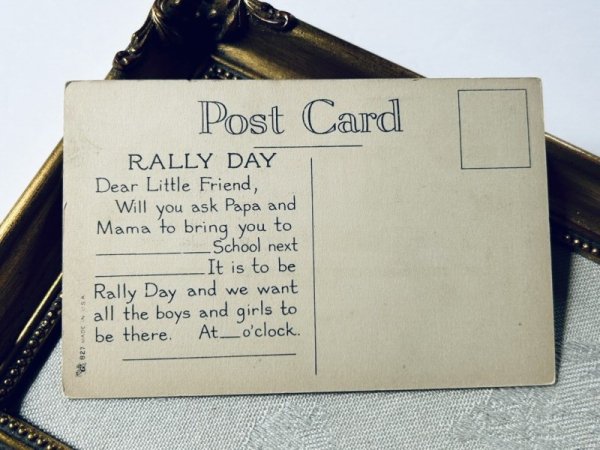 Post Card
RALLY DAY
Dear Little Friend,
Will you ask Papa and
Mama to bring you to
____________School next
____________It is to be
Rally Day and we want
all the boys and girls to
be there. At__o'clock.
827 MADE IN U.S.A.